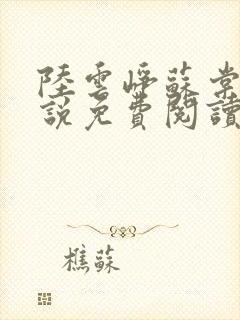 陸雲崢蘇棠
說免費閱讀
樵蘇